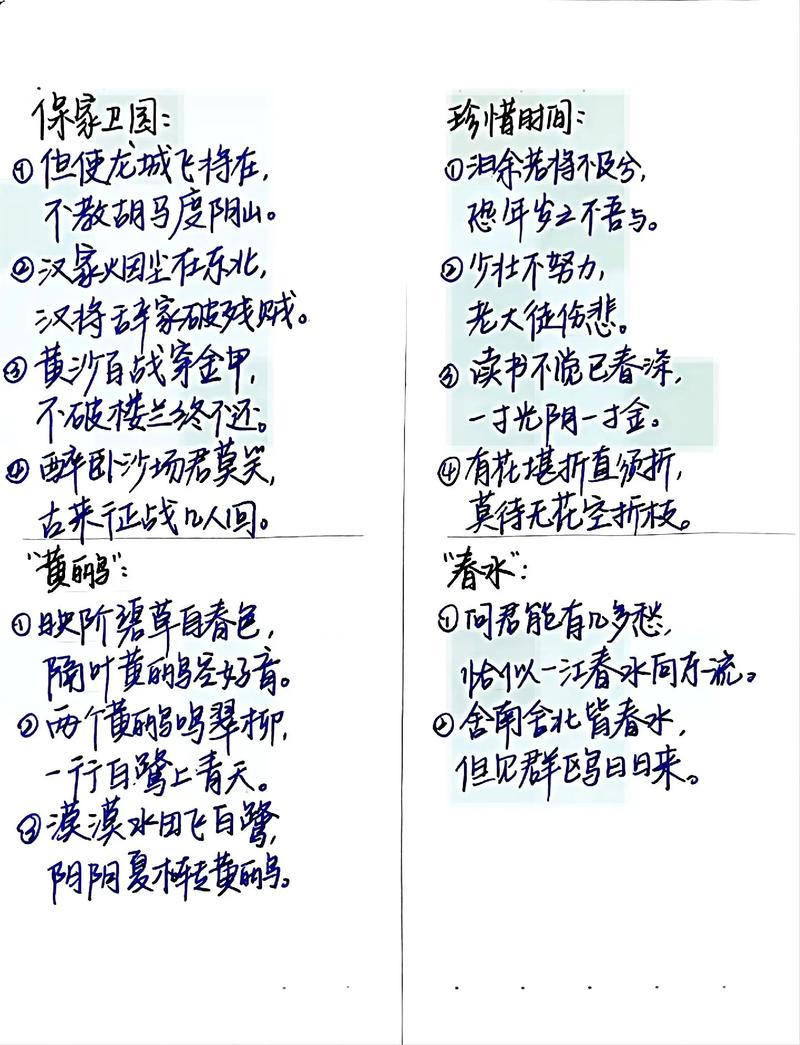 保家卫国：
①但使龙城飞将在，
不教胡马度阴山。
②汉家烟尘在东北，
汉将辞家破残贼。
③黄沙百战穿金甲，
不破楼兰终不还。
④醉卧沙场君莫笑，
古来征战几人回。
“黄鹂”：
①映阶碧草自春色，
隔叶黄鹂空好音。
②两个黄鹂鸣翠柳，
一行白鹭上青天。
③漠漠水田飞白鹭，
阴阴夏木啭黄鹂。
珍惜时间：
①汩余若将不及兮，
恐年岁之不吾与。
②少壮不努力，
老大徒伤悲。
③读书不觉已春深，
一寸光阴一寸金。
④有花堪折直须折，
莫待无花空折枝。
“春水”：
①问君能有几多愁，
恰似一江春水向东流。
②舍南舍北皆春水，
但见群鸥日日来。